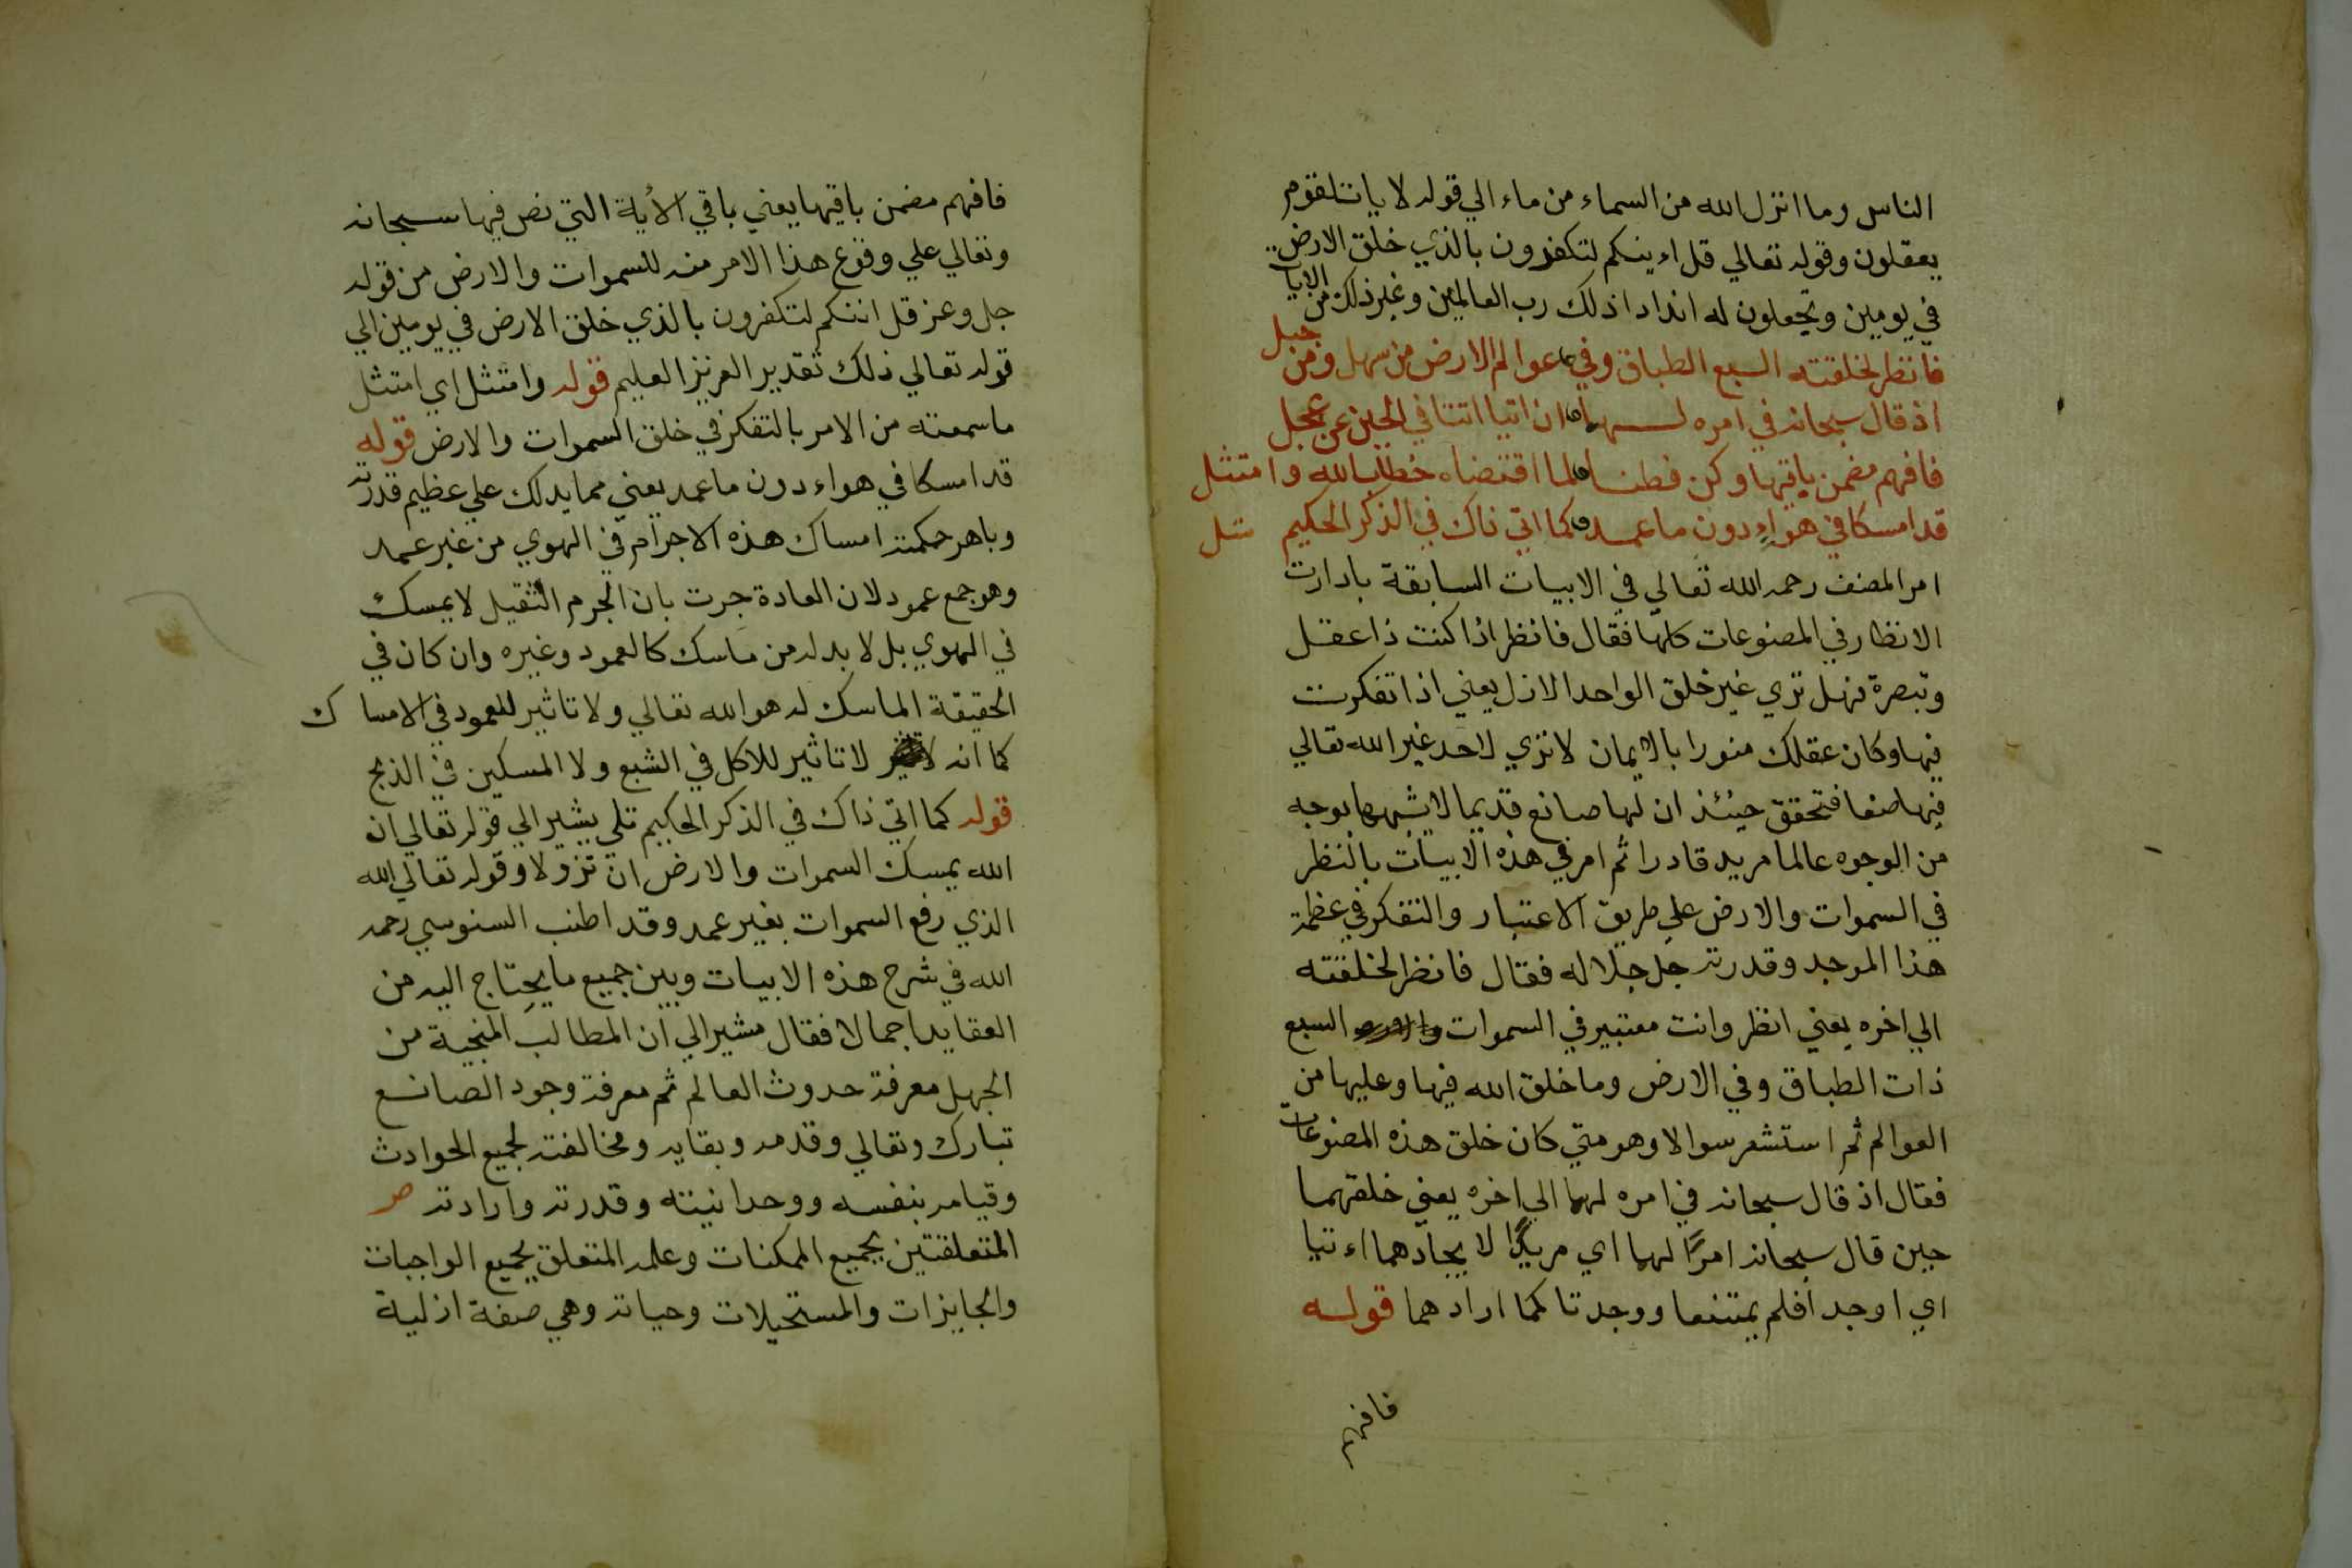 الناس وما انزل الله من السماء من ماء الي قوله لايات لقوم
يعقلون وقوله تعالي قل اءينكم لتكفرون بالذي خلق الارض
في يومين وتجعلون له اندادا ذلك رب العالمين وغير ذلك من الايات
فانظر لخلقته السبع الطباق وفي عوالم الارض من سهل ومن جبل
اذ قال سبحانه في امره لهما ان اتيا اتتا في الحين عن عجل
فافهم مضمن باقيها وكن فطنا لما اقتضاه خطاب الله وامتثل
قد امسكا في هواءٍ دون ما عمد كما اتي ذاك في الذكر الحكيم تلي
امر المصنف رحمه الله تعالي في الابيات السابقة بادارت
الانظار في المصنوعات كلها فقال فانظر اذا كنت ذا عقل
وتبصرة فهل تري غير خلق الواحد الازل يعني اذا تفكرت
فيها وكان عقلك منورا بالايمان لا تري لاحد غير الله تعالي
فيها صنعا فتحقق حينئذ ان لها صانع قديما لا يشبهها بوجه
من الوجوه عالما مريد قادرا ثم امر في هذه الابيات بالنظر
في السموات والارض علي طريق الاعتبار والتفكر في عظمة
هذا الموجد وقدرته جل جلاله فقال فانظر لخلقته
الي اخره يعني انظر وانت معتبير في السموات والارض السبع
ذات الطباق وفي الارض وما خلق الله فيها وعليها من
العوالم ثم استشعر سوالا وهو متي كان خلق هذه المصنوعات
فقال اذ قال سبحانه في امره لهما الي اخره يعني خلقهما
حين قال سبحانه امرًا لهما اي مريدًا لايجادهما اءتيا
اي اوجدا فلم يمتنعا ووجدتا كما ارادهما قوله
فافهم
فافهم مضمن باقيها يعني باقي الأية التي نص فيها سبحانه
وتعالي علي وقوع هذا الامر منه للسموات والارض من قوله
جل وعز قل ائنكم لتكفرون بالذي خلق الارض في يومين الي
قوله تعالي ذلك تقدير العزيز العليم قوله وامتثل اي امتثل
ما سمعته من الامر بالتفكر في خلق السموات والارض قوله
قد امسكا في هواء دون ما عمد يعني مما يدلك علي عظيم قدرته
وباهر حكمته امساك هذه الاجرام في الهوي من غير عمد
وهو جمع عمود لان العادة جرت بان الجرم الثقيل لا يمسك
في الهوي بل لا بد له من ماسك كالعمود وغيره وان كان في
الحقيقة الماسك له هو الله تعالي ولا تاثير للعمود في الامساك
كما انه لا تاثير للاكل في الشبع ولا المسكين في الذبح
قوله كما اتي ذاك في الذكر الحكيم تلي يشير الي قوله تعالي ان
الله يمسك السموات والارض ان تزولا وقوله تعالي الله
الذي رفع السموات بغير عمد وقد اطنب السنوسي رحمه
الله في شرح هذه الابيات وبين جميع ما يحتاج اليه من
العقايد اجمالا فقال مشيرا الي ان المطالب المنجية من
الجهل معرفة حدوث العالم ثم معرفة وجود الصانع
تبارك وتعالي وقدمه وبقايه ومخالفته لجميع الحوادث
وقيامه بنفسه ووحدانيته وقدرته وارادته صر
المتعلقتين بجميع الممكنات وعلمه المتعلق بجميع الواجبات
والجايزات والمستحيلات وحياته وهي صفة ازلية